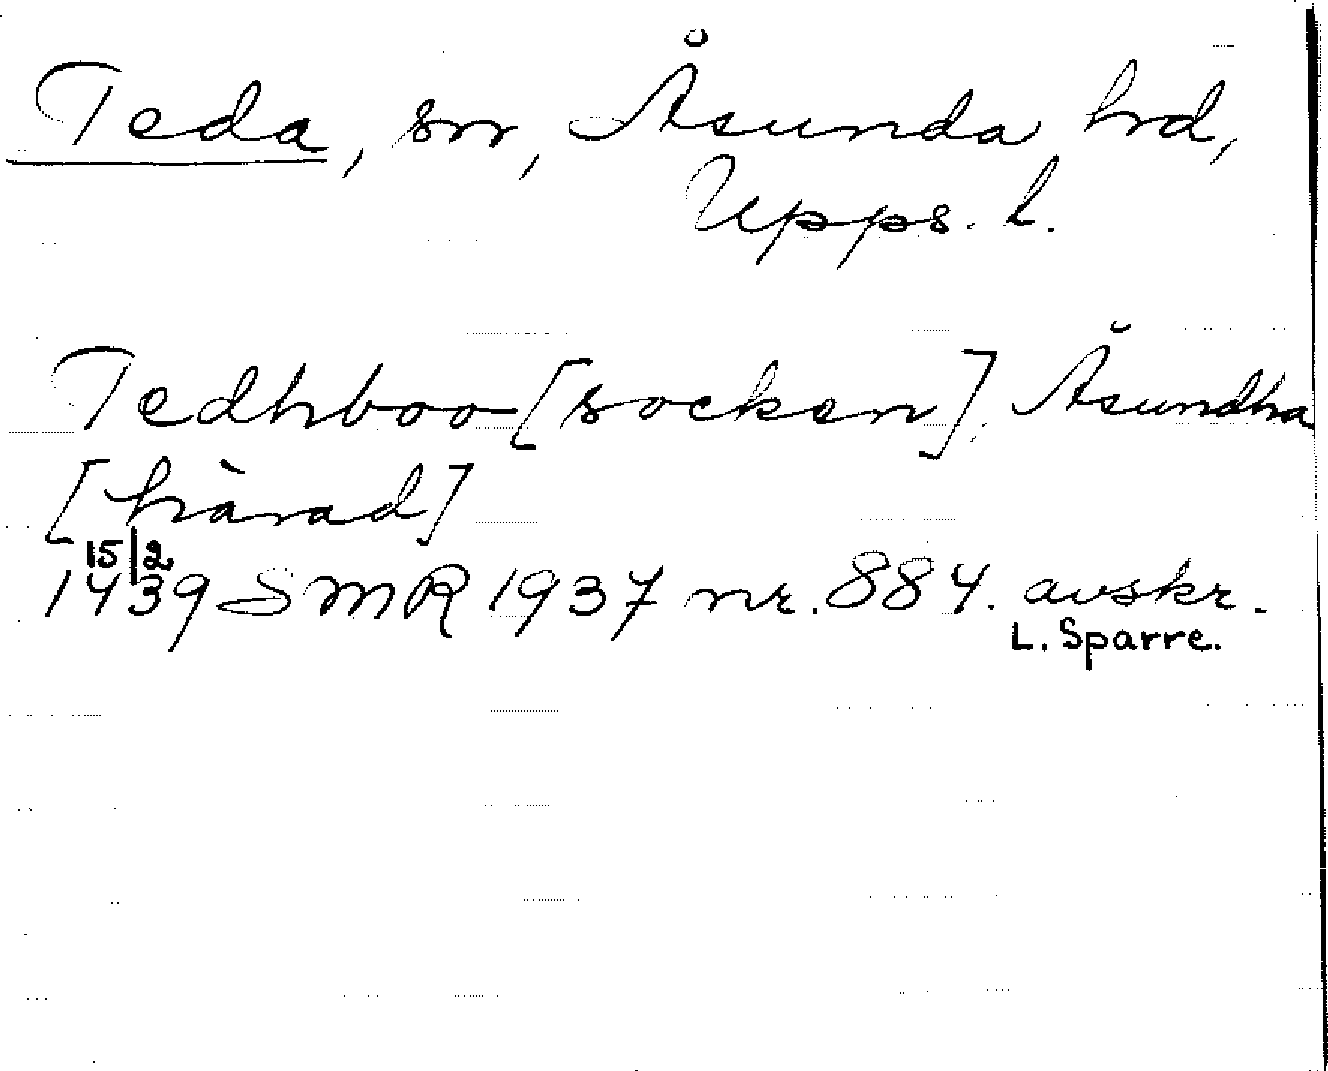 Teda, sn, Åsunda hd,
Upps. l.
Tedhboo [socken], Åsundha
[härad]
15/2
1439 SMR 1937 nr. 884. avskr.
L. Sparre.